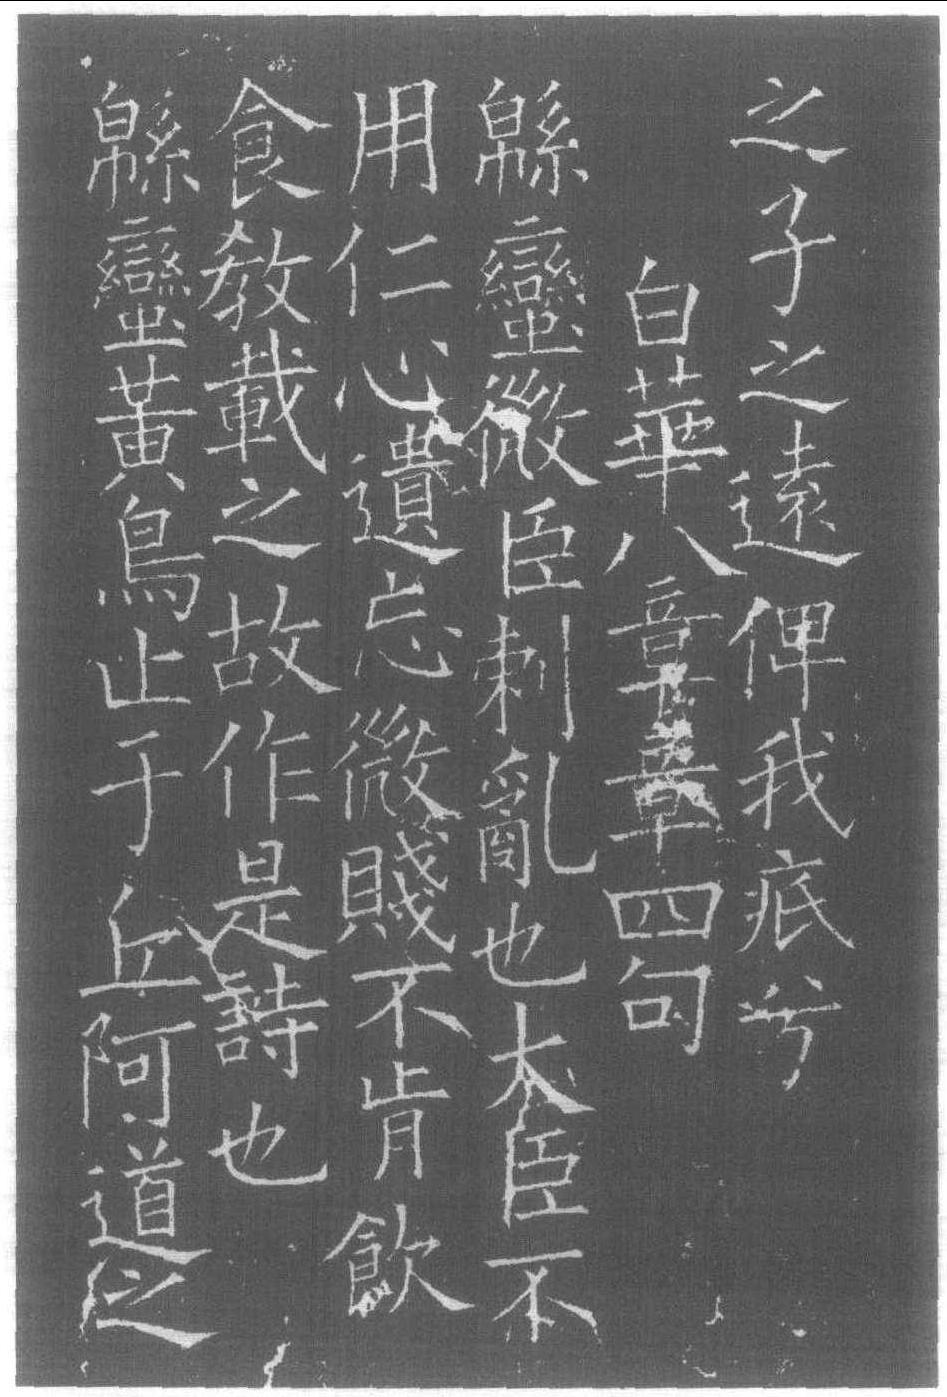 之子之遠俾我疧兮
白華八章章四句
緜蠻微臣刺亂也大臣不
用仁心遺忘微賤不肯飲
食教載之故作是詩也
緜蠻黃鳥止于丘阿道之